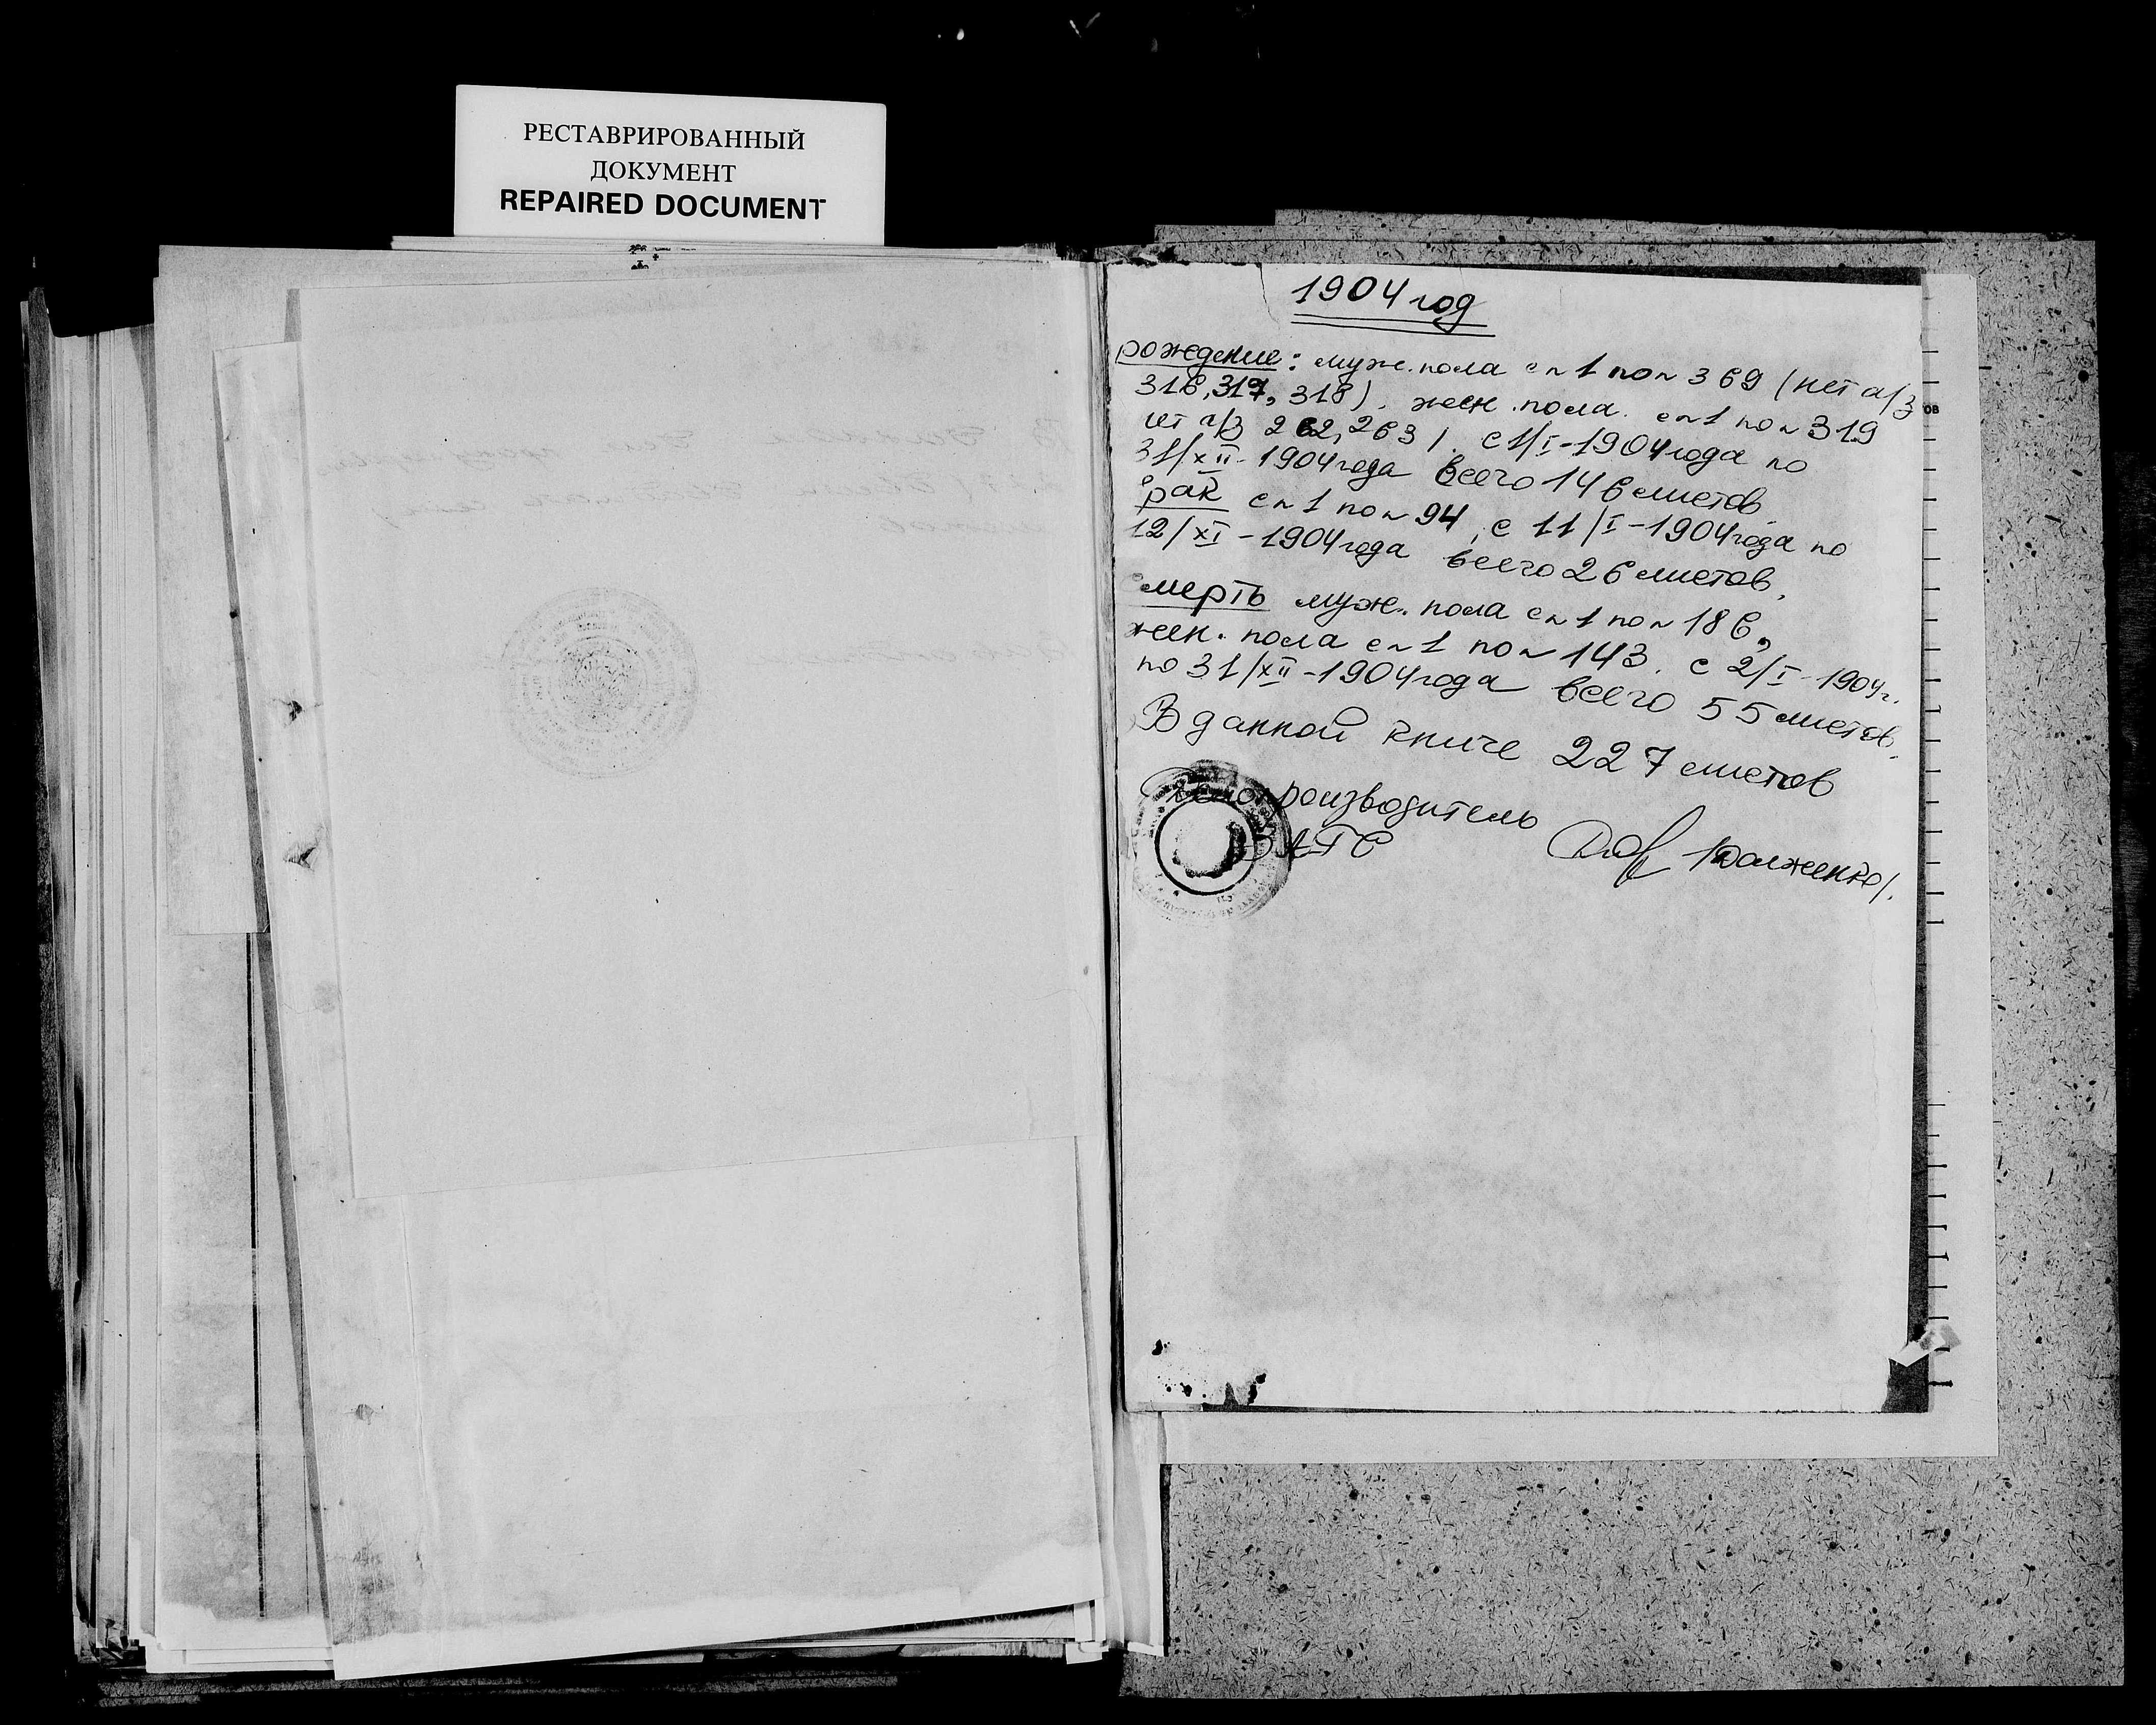 РЕСТАВРИРОВАННЫЙ
ДОКУМЕНТ
REPAIRED DOCUMENT
1904 год
рождение: муж. пола с ~ 1 по ~ 369 (нет а/з
316, 317, 318), жен. пола с ~ 1 по ~ 319
ет а/з 262, 263). с 1/I-1904 года по
31/XII-1904 года всего 146 листов.
брак с ~ 1 по ~ 94, с 11/I-1904 года по
12/XI-1904 года всего 26 листов,
смерть муж. пола с ~ 1 по ~ 186,
жен. пола с ~ 1 по ~ 143. с 2/I-1904г.
по 31/XII-1904 года всего 55 листов.
В данной книге 227 листов
Делопроизводитель
ЗАГС /Долженко/.